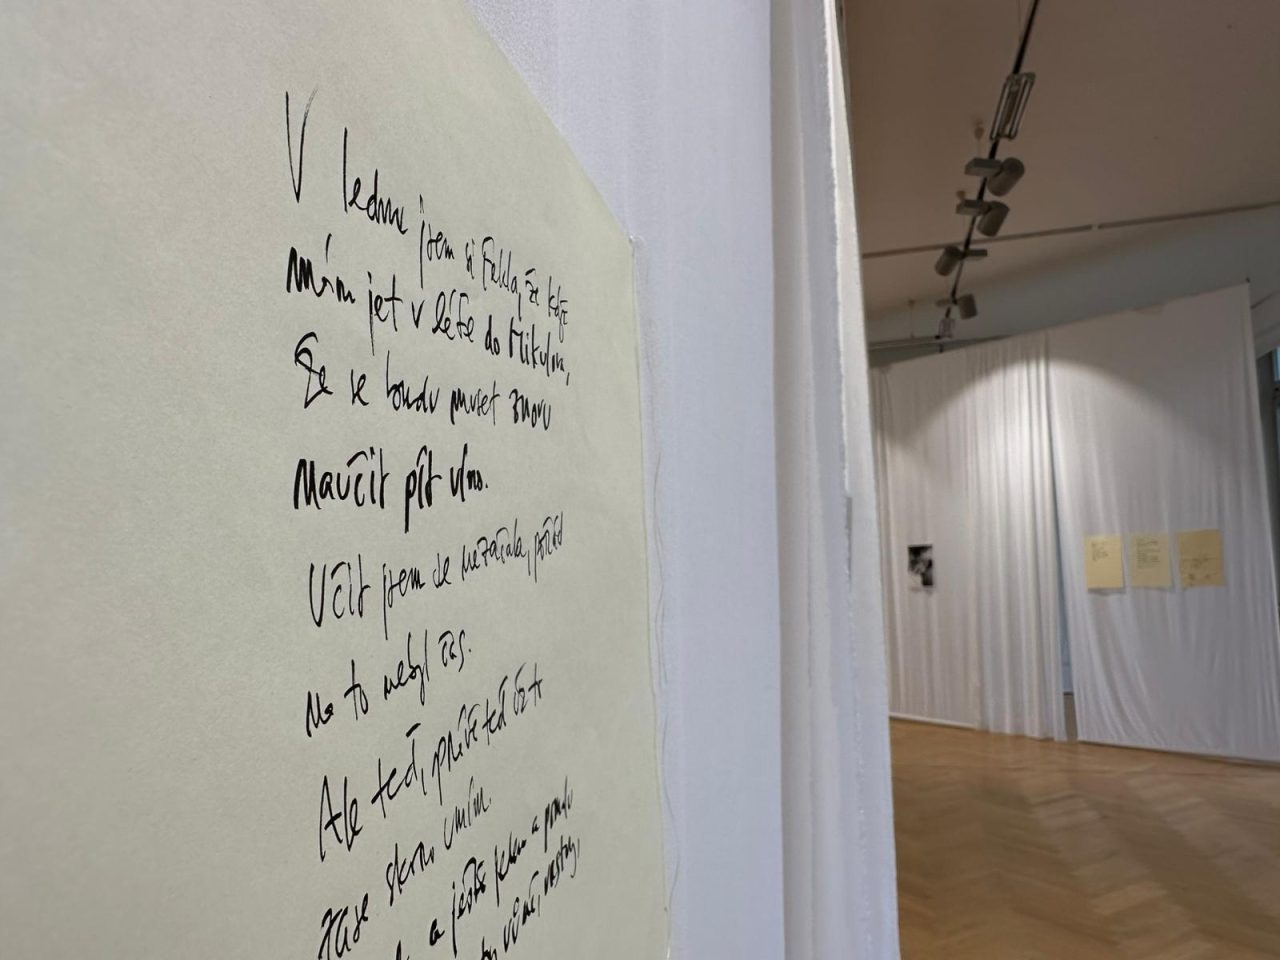 V lednu jsem si řekla, že když
mám jet v létě do Mikulova,
že se budu muset znovu
naučit pít víno.
Učit jsem se nezačala, pořád
na to nebyl čas.
Ale teď, právě teď
zase skoro umím.
a ještě a
vůně,